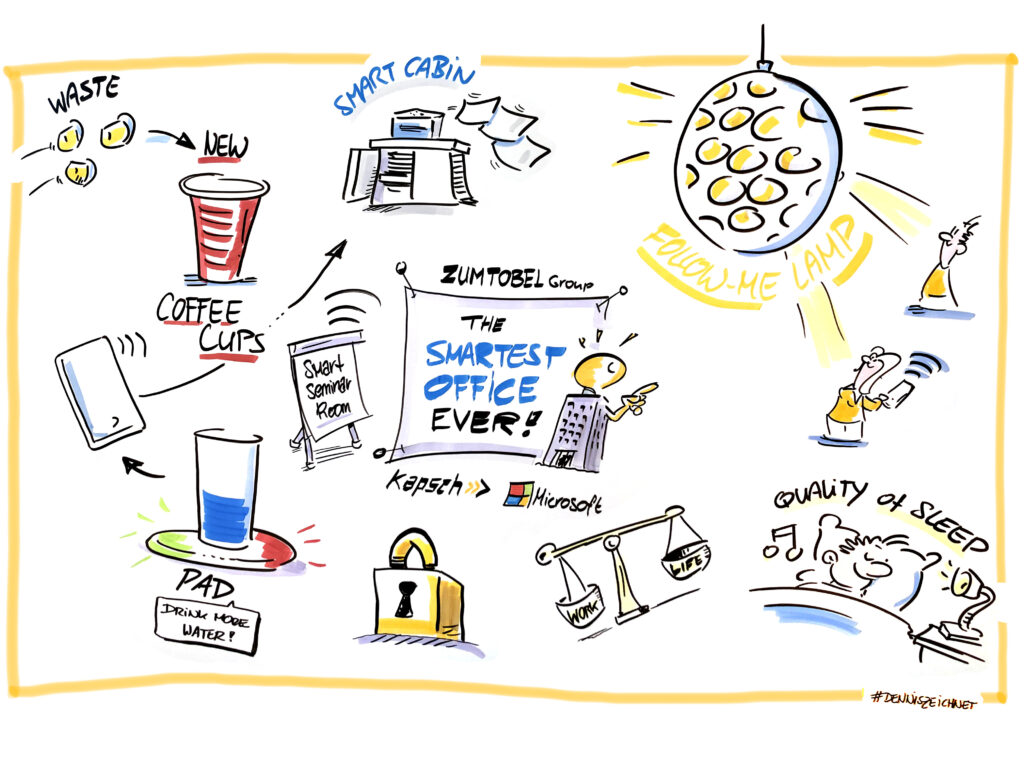 WASTE
NEW
COFFEE
CUPS
SMART CABIN
FOLLOW-ME LAMP
ZUMTOBEL Group
THE
SMARTEST
OFFICE
EVER!
Smart
Seminar
Room
Kapsch
Microsoft
PAD
DRINK MORE
WATER!
WORK
LIFE
QUALITY of SLEEP
#DENNISZEICHNET